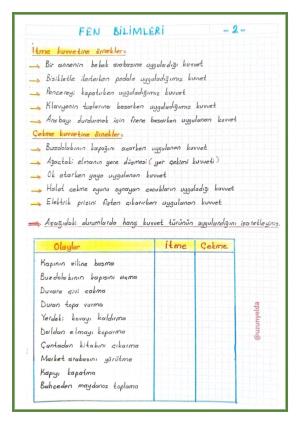 FEN BİLİMLERİ
- 2 -
İtme kuvvetine örnekler:
→ Bir annenin bebek arabasına uyguladığı kuvvet
→ Bisikletle ilerlerken pedala uyguladığımız kuvvet
→ Pencereyi kapatırken uyguladığımız kuvvet
→ Klavyenin tuşlarına basarken uygulanan kuvvet
→ Arabayı durdurmak için frene basarken uygulanan kuvvet
Çekme kuvvetine örnekler:
→ Buzdolabının kapağını açarken uygulanan kuvvet
→ Ağaçtaki elmanın yere düşmesi (yer çekimi kuvveti)
→ Ok atarken yaya uygulanan kuvvet
→ Halat çekme oyunu oynayan çocukların uyguladığı kuvvet
→ Elektrik prizini fişten çıkarırken uygulanan kuvvet
⇒ Aşağıdaki durumlarda hangi kuvvet türünün uygulandığını işaretleyiniz.
Olaylar İtme Çekme
Kapının ziline basma
Buzdolabının kapısını açma
Duvara çivi çakma
Duran topa vurma
Yerdeki kovayı kaldırma
Daldan elmayı koparma
Çantadan kitabını çıkarma
Market arabasını yürütme
Kapıyı kapatma
Bahçeden maydanoz toplama
@uzunyelda